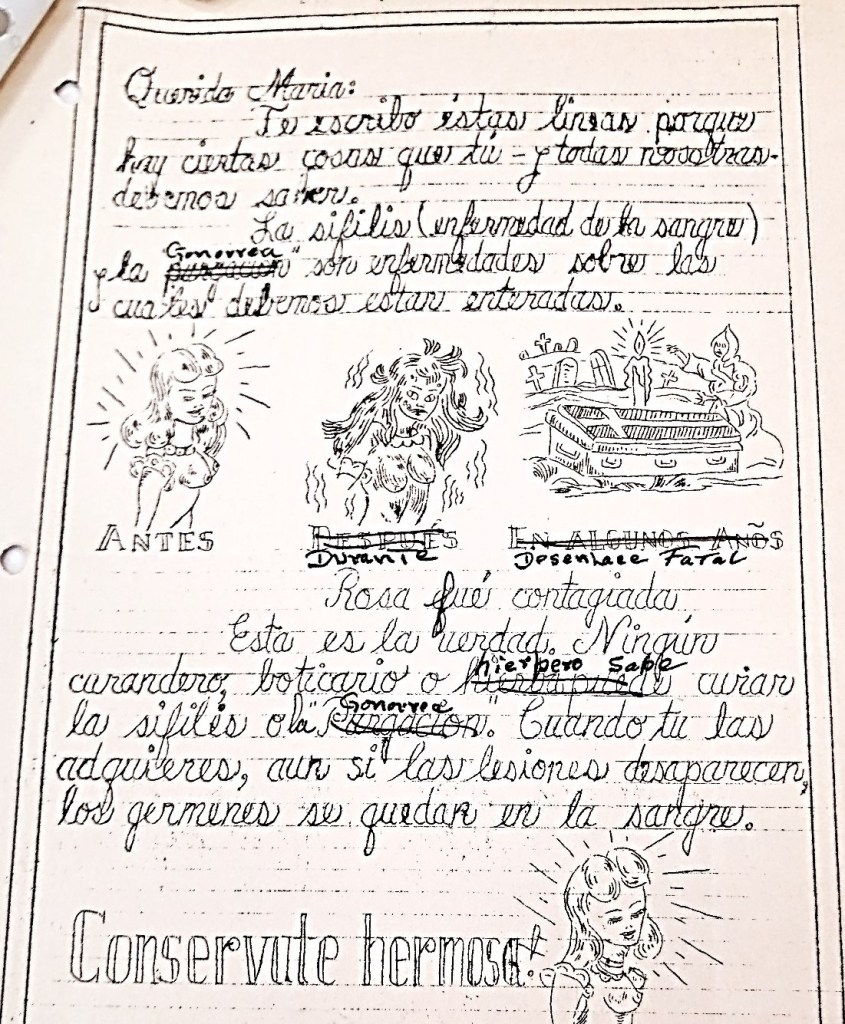 Querida Maria:
Te escribo éstas lineas porque
hay ciertas cosas que tú - y todas nosotras -
debemos saber.
La sifilis (enfermedad de la sangre)
Gonorrea
y la "purgacion" son enfermedades sobre las
cuales debemos estar enteradas.
ANTES DESPUÉS EN ALGUNOS AÑOS
Durante Desenlace Fatal
Rosa fué contagiada
Esta es la verdad. Ningún
hierbero sabe
curandero, boticario o hierba puede curar
Gonorrea
la sifilis o la "Purgacion". Cuando tu las
adquieres, aun si las lesiones desaparecen,
los germenes se quedan en la sangre.
Conservate hermosa!